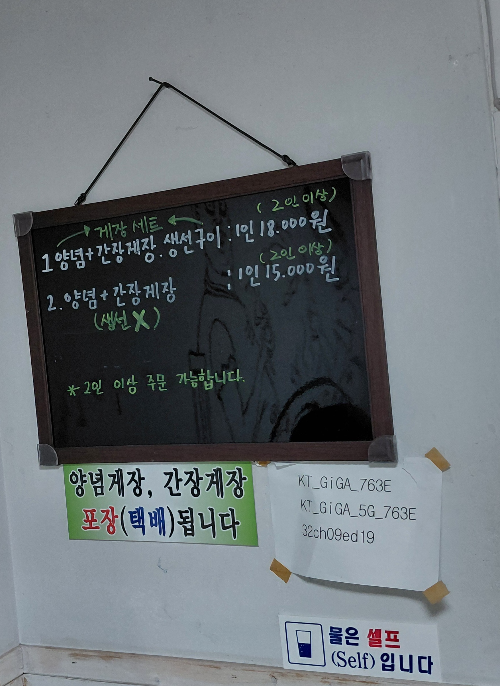 게장 세트
(2인 이상)
1 양념+간장게장. 생선구이 : 1인 18.000원
(2인 이상)
2. 양념+간장게장 : 1인 15.000원
(생선 X)
* 2인 이상 주문 가능합니다.
양념게장, 간장게장
포장(택배)됩니다
KT_GiGA_763E
KT_GiGA_5G_763E
32ch09ed19
물은 셀프
(Self) 입니다